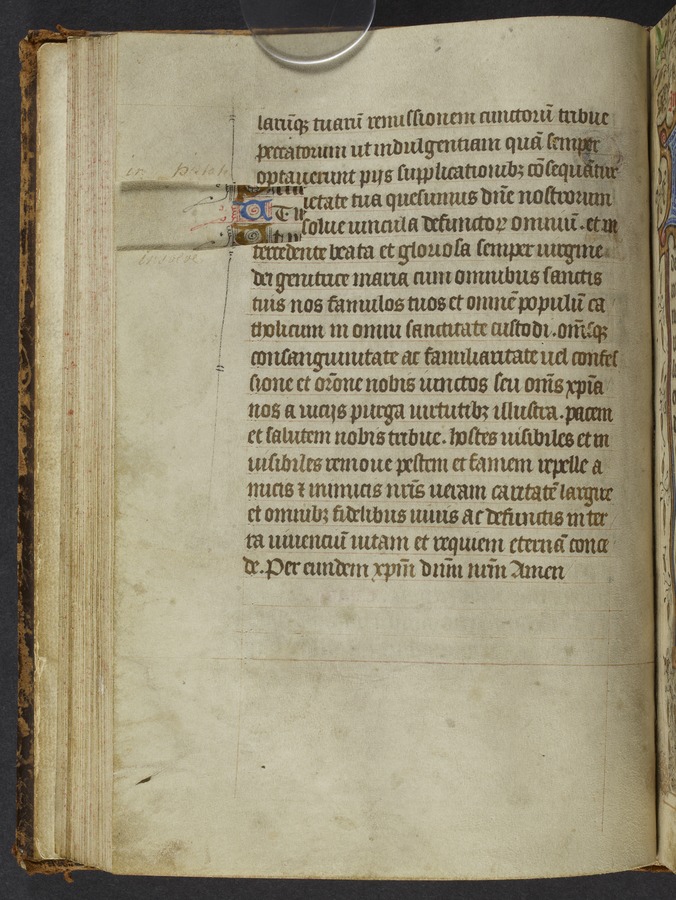 larūqꝫ tuarū remissionem cunctorū tribue
peccatorum ut indulgentiam quā semper
optauerunt pijs supplicationibꝫ cōsequātur
ietate tua quesumus dn̄e nostrorum
solue uincula defunctoꝝ omniū . et in
tercedente beata et gloriosa semper uirgine
dei genitrice maria cum omnibus sanctis
tuis nos famulos tuos et omnē populū ca
tholicum in omni sanctitate custodi . om̄isqꝫ
consanguinitate ac familiaritate uel confes
sione et or̄one nobis iunctos seu om̄s xp̄ia
nos a uicijs purga uirtutibꝫ illustra . pacem
et salutem nobis tribue . hostes uisibiles et in
uisibiles remoue pestem et famem repelle a
micis ⁊ inimicis nr̄is ueram caritatē largire
et omnibꝫ fidelibus uiuis ac defunctis in ter
ra uiuenciū uitam et requiem eternā conce
de . Per eundem xp̄m dn̄m nr̄m Amen